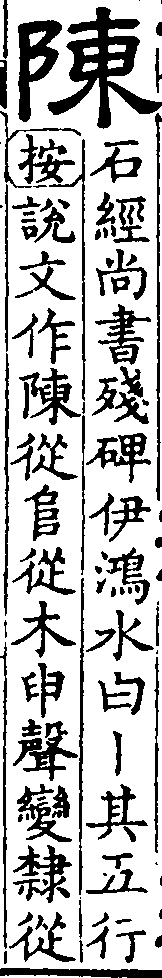 陳
石經尚書殘碑伊鴻水曰丨其五行
按說文作陳從𨸏從木申聲變隸從